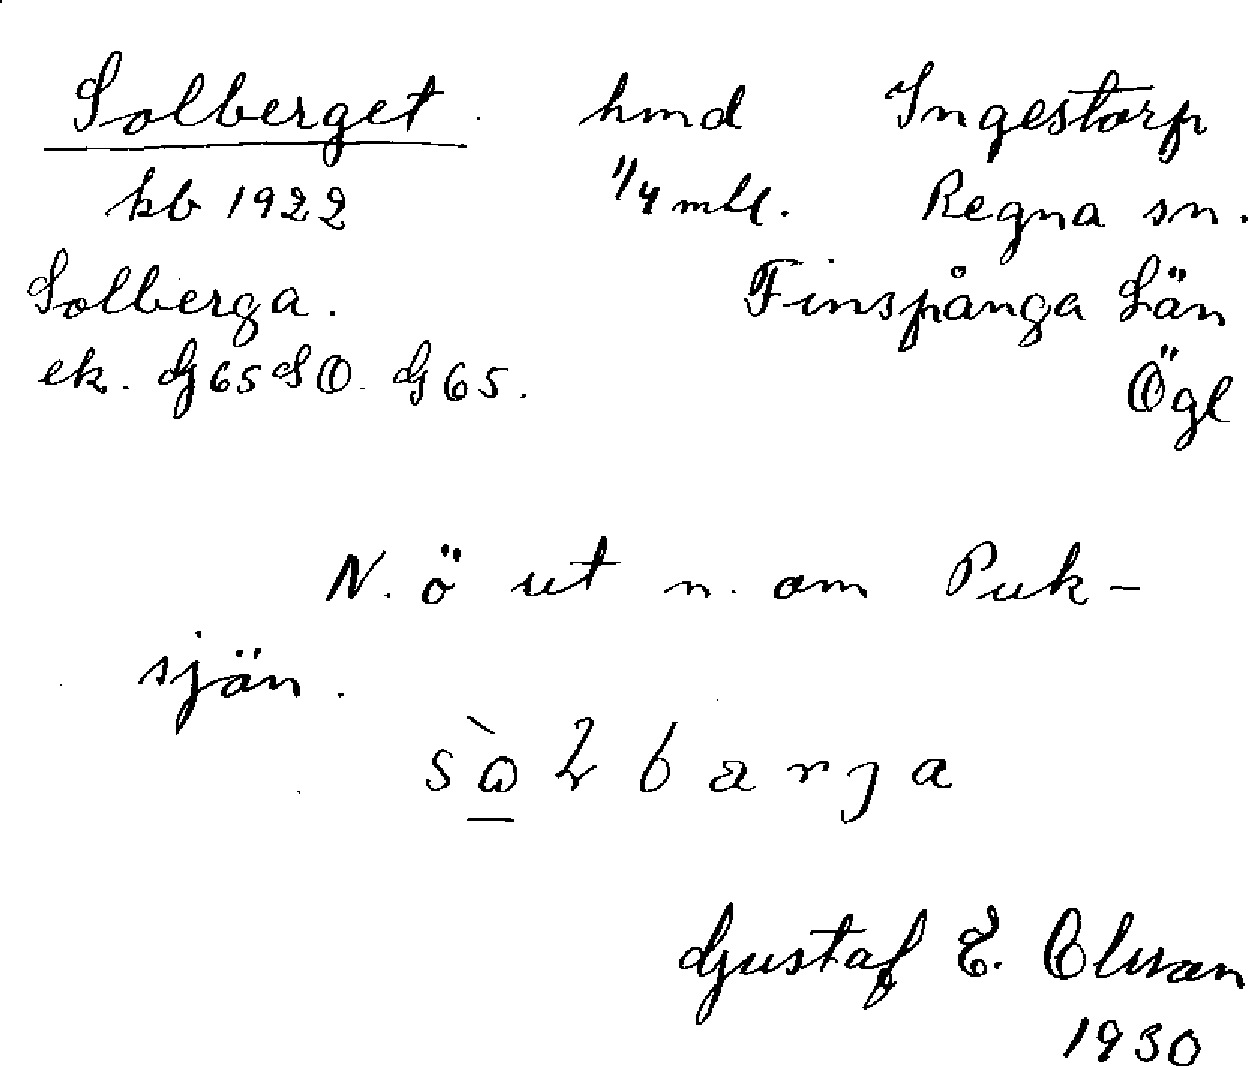 Solberget hmd Ingestorp
kb 1922 1/4 mtl. Regna sn.
Solberga. Finspånga Län
ek. G65SO. G65. Ögl
N. ö ut n. om Puk-
sjän.
barja
Gustaf E. Olsson
1930